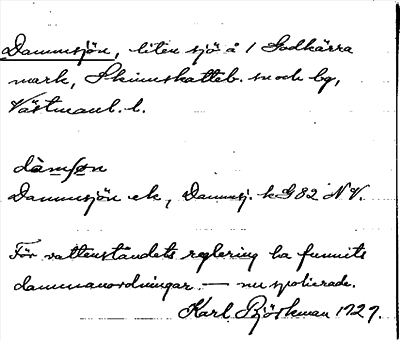 Dammsjön, liten sjö å 1 Godkärra
mark, Skinnskatteb. sn och bg,
Västmanl. l.
dàmʃøn
Dammsjön ek, Dammsj. k G 82 N V.
För vattenståndets reglering ha funnits
dammanordningar — nu spolierade.
Karl Björkman 1929.